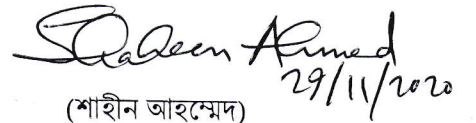 Shaheen Ahmed
29/11/2020
(শাহীন আহম্মেদ)